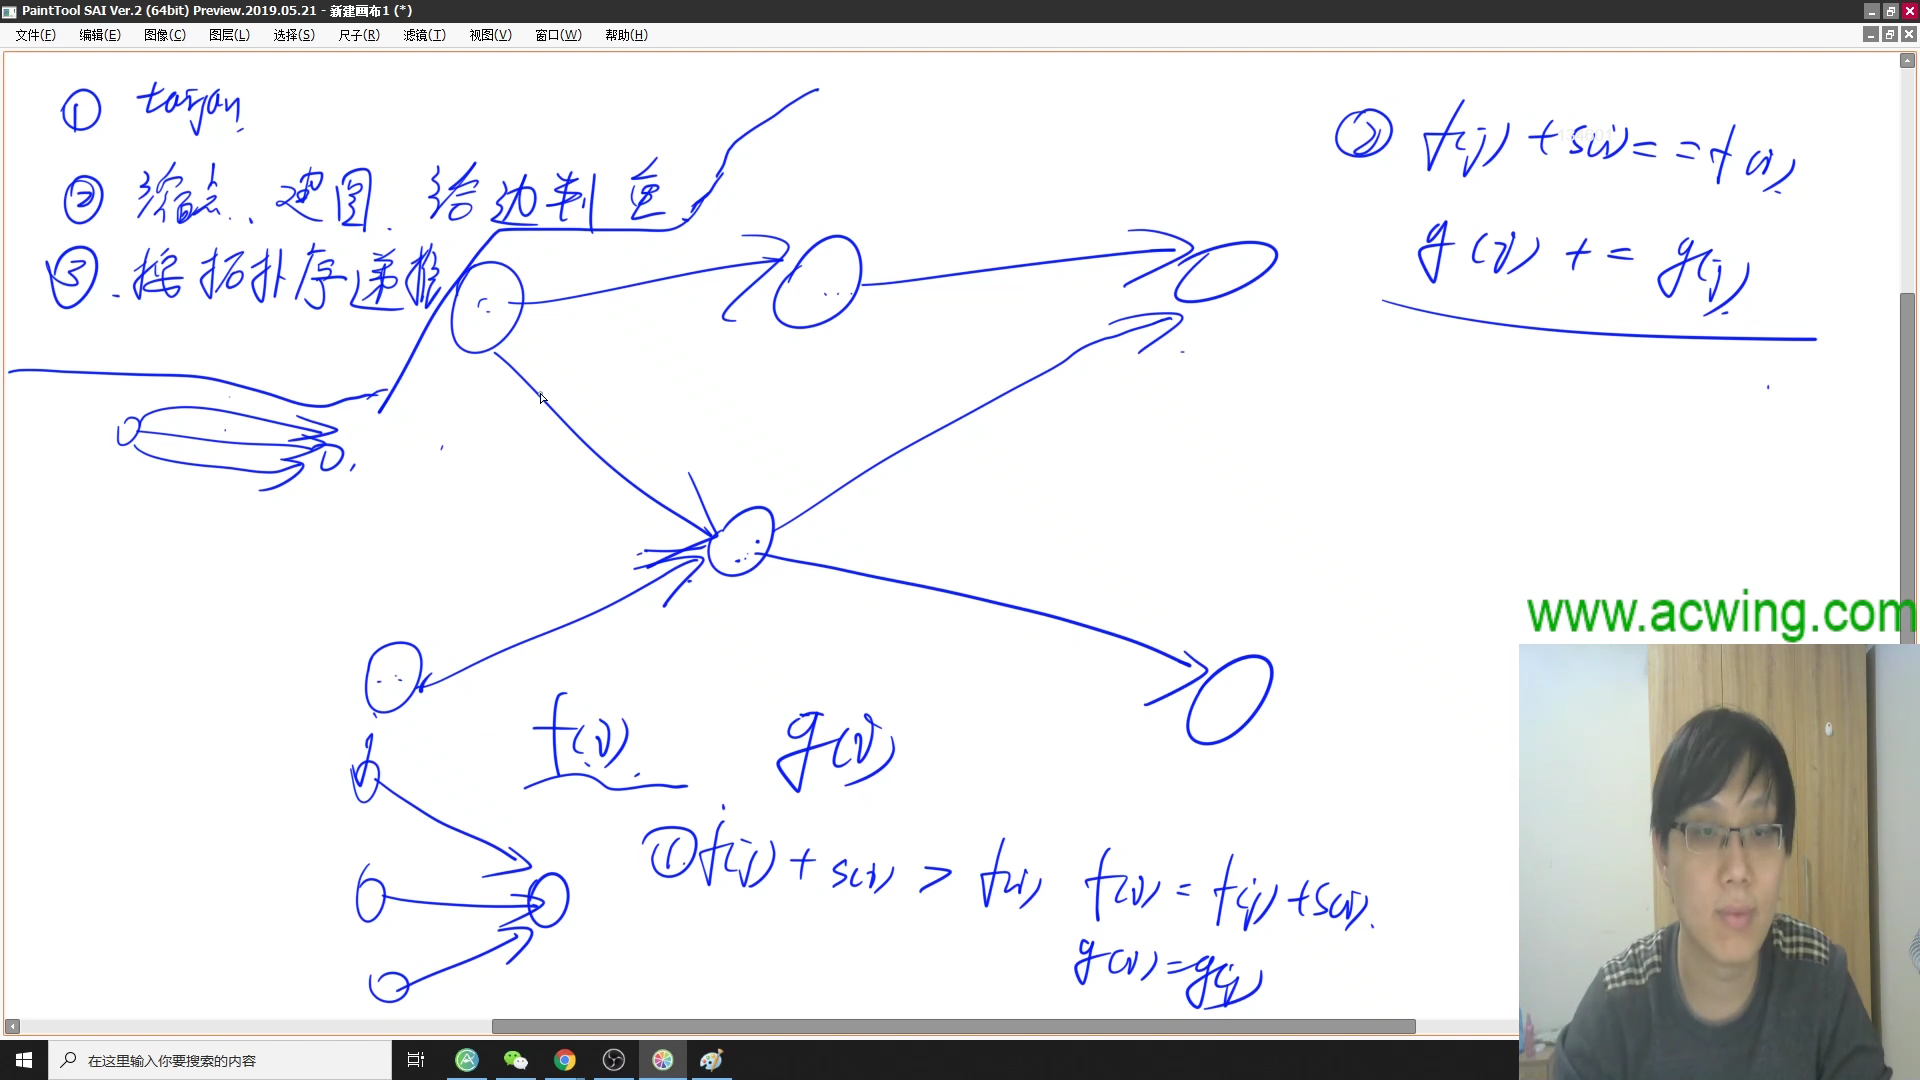 PaintTool SAI Ver.2 (64bit) Preview.2019.05.21 - 新建画布1 (*)
文件(F) 编辑(E) 图像(C) 图层(L) 选择(S) 尺子(R) 滤镜(T) 视图(V) 窗口(W) 帮助(H)
① tarjan
② 缩点、建图、给边判重
③ 按拓扑序递推
② f(j) + s(i) == f(i)
g(i) += g(j)
f(i) g(i)
① f(j) + s(i) > f(i) f(i) = f(j) + s(i).
g(i) = g(j)
www.acwing.com
在这里输入你要搜索的内容